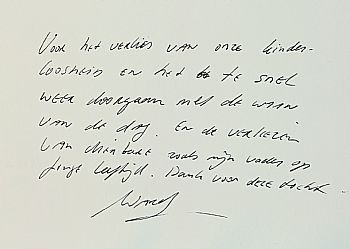 Voor het verlies van onze kinder-
loosheid en het te snel
weer doorgaan met de waan
van de dag. En de verliezen
van dierbare zoals mijn vader op
jonge leeftijd. Dank voor deze tocht.